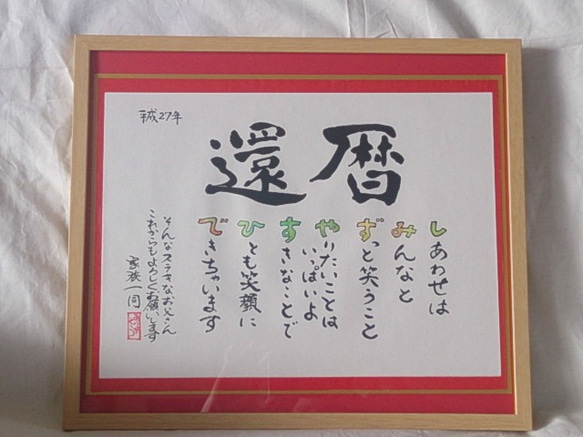 平成27年
還暦
しあわせは
みんなと
ずっと笑うこと
やりたいことは
いっぱいよ
すきなことで
ひとも笑顔に
できちゃいます
そんなステキなお父さん
これからもよろしくお願いします
家族一同